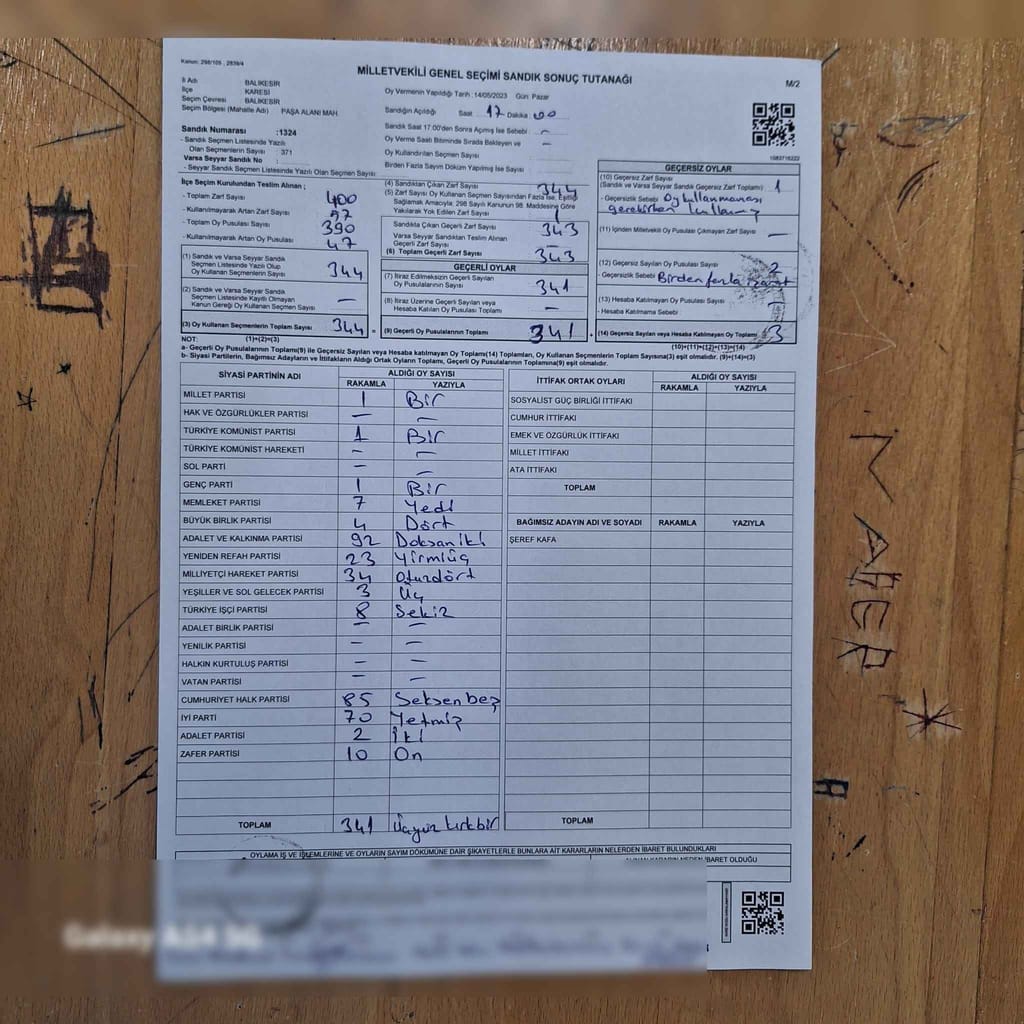 Kanun: 298/105 , 2839/4
MİLLETVEKİLİ GENEL SEÇİMİ SANDIK SONUÇ TUTANAĞI
M/2
İl Adı BALIKESİR
İlçe KARESİ
Seçim Çevresi BALIKESİR
Seçim Bölgesi (Mahalle Adı) PAŞA ALANI MAH.
Oy Vermenin Yapıldığı Tarih : 14/05/2023 Gün: Pazar
Sandığın Açıldığı Saat 17 Dakika 00
Sandık Saat 17:00'den Sonra Açılmış İse Sebebi -
Oy Verme Saati Bitiminde Sırada Bekleyen ve
Oy Kullandırılan Seçmen Sayısı -
Birden Fazla Sayım Döküm Yapılmış İse Sayısı
Sandık Numarası :1324
- Sandık Seçmen Listesinde Yazılı
Olan Seçmenlerin Sayısı : 371
Varsa Seyyar Sandık No :
- Seyyar Sandık Seçmen Listesinde Yazılı Olan Seçmen Sayısı
İlçe Seçim Kurulundan Teslim Alınan ;
- Toplam Zarf Sayısı 400
- Kullanılmayarak Artan Zarf Sayısı
- Toplam Oy Pusulası Sayısı 390
- Kullanılmayarak Artan Oy Pusulası 47
(1) Sandık ve Varsa Seyyar Sandık
Seçmen Listesinde Yazılı Olup
Oy Kullanan Seçmenlerin Sayısı 344
(2) Sandık ve Varsa Seyyar Sandık
Seçmen Listesinde Kayıtlı Olmayan
Kanun Gereği Oy Kullanan Seçmen Sayısı -
(3) Oy Kullanan Seçmenlerin Toplam Sayısı 344 =
(1)+(2)=(3)
(4) Sandıktan Çıkan Zarf Sayısı 344
(5) Zarf Sayısı Oy Kullanan Seçmen Sayısından Fazla İse, Eşitliği
Sağlamak Amacıyla, 298 Sayılı Kanunun 98. Maddesine Göre
Yakılarak Yok Edilen Zarf Sayısı
Sandıkta Çıkan Geçerli Zarf Sayısı 343
Varsa Seyyar Sandıktan Teslim Alınan
Geçerli Zarf Sayısı -
(6) Toplam Geçerli Zarf Sayısı 343
GEÇERLİ OYLAR
(7) İtiraz Edilmeksizin Geçerli Sayılan
Oy Pusulası Sayısı 341
(8) İtiraz Üzerine Geçerli Sayılan veya
Hesaba Katılan Oy Pusulası Toplamı -
(9) Geçerli Oy Pusulalarının Toplamı 341 +
GEÇERSİZ OYLAR
(10) Geçersiz Zarf Sayısı
(Sandık ve Varsa Seyyar Sandık Geçersiz Zarf Toplamı) 1
- Geçersizlik Sebebi Oy kullanmaması
gerekirken
(11) İçinden Milletvekili Oy Pusulası Çıkmayan Zarf Sayısı -
(12) Geçersiz Sayılan Oy Pusulası Sayısı 2
- Geçersizlik Sebebi Birden fazla
(13) Hesaba Katılmayan Oy Pusulası Sayısı
- Hesaba Katılmama Sebebi
(14) Geçersiz Sayılan veya Hesaba Katılmayan Oy Toplamı 3
(10)+(11)+(12)+(13)=(14)
NOT:
a- Geçerli Oy Pusulalarının Toplamı(9) ile Geçersiz Sayılan veya Hesaba katılmayan Oy Toplamı(14) Toplamları, Oy Kullanan Seçmenlerin Toplam Sayısına(3) eşit olmalıdır. (9)+(14)=(3)
b- Siyasi Partilerin, Bağımsız Adayların ve İttifakların Aldığı Ortak Oyların Toplamı, Geçerli Oy Pusulalarının Toplamına(9) eşit olmalıdır.
SİYASİ PARTİNİN ADI ALDIĞI OY SAYISI
RAKAMLA YAZIYLA
MİLLET PARTİSİ 1 Bir
HAK VE ÖZGÜRLÜKLER PARTİSİ - -
TÜRKİYE KOMÜNİST PARTİSİ 1 Bir
TÜRKİYE KOMÜNİST HAREKETİ - -
SOL PARTİ - -
GENÇ PARTİ 1 Bir
MEMLEKET PARTİSİ 7 Yedi
BÜYÜK BİRLİK PARTİSİ 4 Dört
ADALET VE KALKINMA PARTİSİ 92 Doksaniki
YENİDEN REFAH PARTİSİ 23 Yirmiüç
MİLLİYETÇİ HAREKET PARTİSİ 34 Otuzdört
YEŞİLLER VE SOL GELECEK PARTİSİ 3 Üç
TÜRKİYE İŞÇİ PARTİSİ 8 Sekiz
ADALET BİRLİK PARTİSİ - -
YENİLİK PARTİSİ - -
HALKIN KURTULUŞ PARTİSİ - -
VATAN PARTİSİ - -
CUMHURİYET HALK PARTİSİ 85 Seksen beş
İYİ PARTİ 70 Yetmiş
ADALET PARTİSİ 2 İki
ZAFER PARTİSİ 10 On
TOPLAM 341 Üçyüz kırkbir
İTTİFAK ORTAK OYLARI ALDIĞI OY SAYISI
RAKAMLA YAZIYLA
SOSYALİST GÜÇ BİRLİĞİ İTTİFAKI
CUMHUR İTTİFAKI
EMEK VE ÖZGÜRLÜK İTTİFAKI
MİLLET İTTİFAKI
ATA İTTİFAKI
TOPLAM
BAĞIMSIZ ADAYIN ADI VE SOYADI RAKAMLA YAZIYLA
ŞEREF KAFA
TOPLAM
OYLAMA İŞ VE İŞLEMLERİNE VE OYLARIN SAYIM DÖKÜMÜNE DAİR ŞİKAYETLERLE BUNLARA AİT KARARLARIN NELERDEN İBARET BULUNDUKLARI
ALINAN KARARIN NEDEN İBARET OLDUĞU